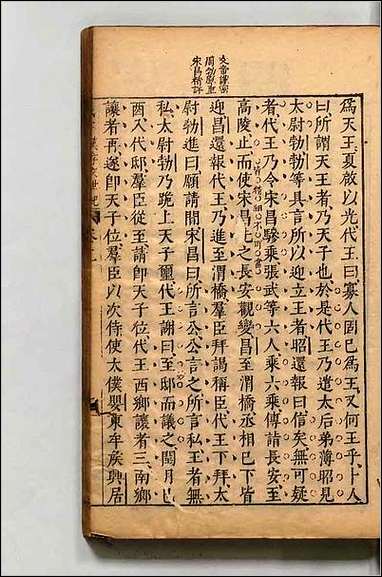 文帝謹密
周勃厚重
宋昌精詳
爲天王夏啟以光代王曰寡人固已爲王又何王乎卜人
曰所謂天王者乃天子也於是代王乃遣太后弟薄昭見
太尉勃勃等具言所以迎立王者昭還報曰信矣無可疑
者代王乃令宋昌驂乘張武等六人乘六乘傳詣長安至
高陵止而使宋昌先之長安觀變昌至渭橋丞相已下皆
迎昌還報代王乃進至渭橋羣臣拜謁稱臣代王下拜太
尉勃進曰願請閒宋昌曰所言公公言之所言私王者無
私太尉勃乃跪上天子璽代王謝曰至邸而議之閏月己
酉入代邸羣臣從至請即天子位代王西鄉讓者三南鄉
讓者再遂即天子位羣臣以次侍使太僕嬰東牟侯興居